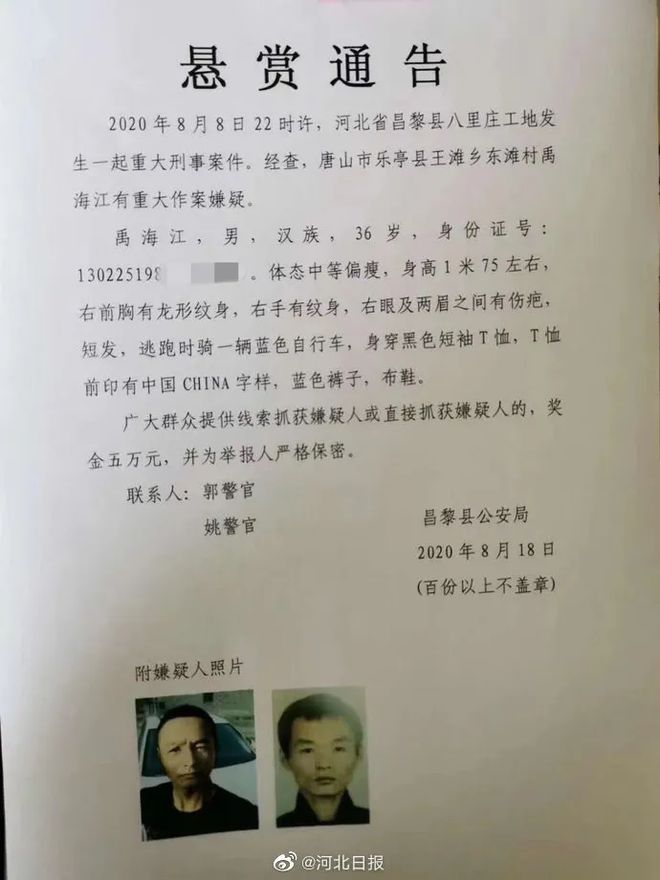 悬赏通告
2020年8月8日22时许，河北省昌黎县八里庄工地发
生一起重大刑事案件。经查，唐山市乐亭县王滩乡东滩村禹
海江有重大作案嫌疑。
禹海江，男，汉族，36岁，身份证号：
130225198 。体态中等偏瘦，身高1米75左右，
右前胸有龙形纹身，右手有纹身，右眼及两眉之间有伤疤，
短发，逃跑时骑一辆蓝色自行车，身穿黑色短袖T恤，T恤
前印有中国CHINA字样，蓝色裤子，布鞋。
广大群众提供线索抓获嫌疑人或直接抓获嫌疑人的，奖
金五万元，并为举报人严格保密。
联系人：郭警官
姚警官
昌黎县公安局
2020年8月18日
(百份以上不盖章)
附嫌疑人照片
@河北日报